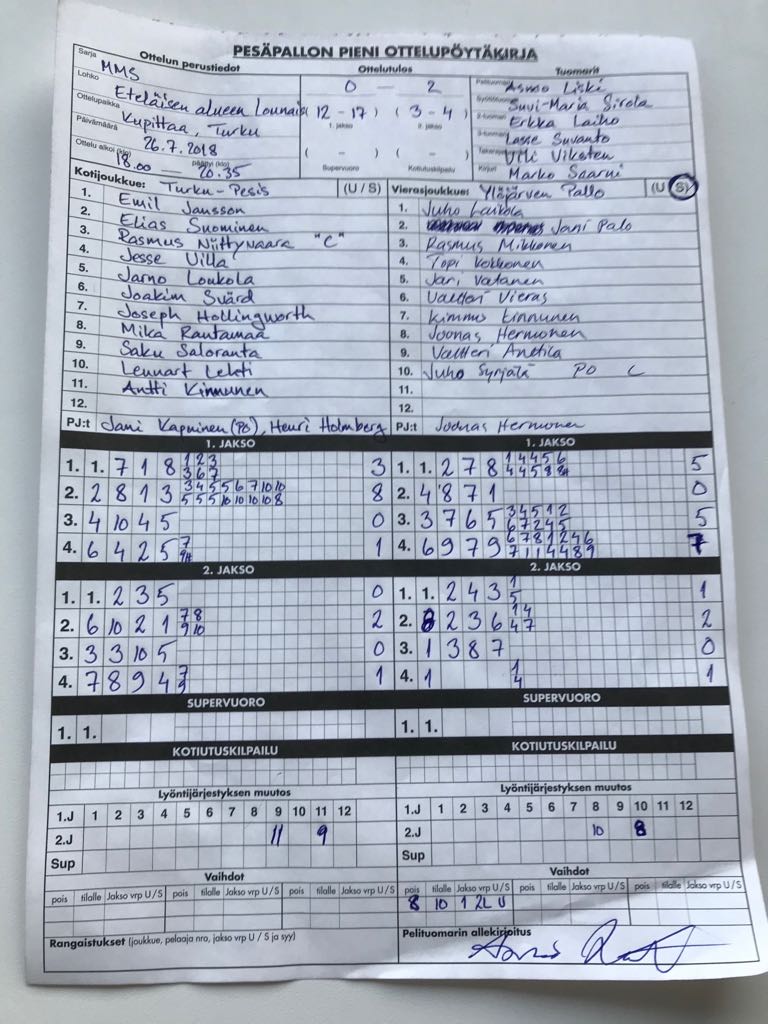 PESÄPALLON PIENI OTTELUPÖYTÄKIRJA
Ottelun perustiedot
Sarja MMS
Lohko Eteläisen alueen Lounais
Ottelupaikka Kupittaa, Turku
Päivämäärä 26.7.2018
Ottelu alkoi (klo) 18.00 — päättyi (klo) 20.35
Ottelutulos
0 — 2
(12 - 17) (3 - 4)
1. jakso 2. jakso
( - ) ( - )
Supervuoro Kotiutuskilpailu
Tuomarit
Pelituomari Asmo Liski
Suvi-Maria Sirola
2-tuomari Erkka Laiho
3-tuomari Lasse Suvanto
Takaraja Ville Viksten
Kirjuri Marko Saarni
Kotijoukkue: Turku-Pesis (U / S)
1. Emil Jansson
2. Elias Suominen
3. Rasmus Niittynaara "C"
4. Jesse Villa
5. Jarno Loukola
6. Joakim Svärd
7. Joseph Hollingworth
8. Mika Rantamaa
9. Saku Saloranta
10. Lennart Lehti
11. Antti Kinnunen
12.
PJ:t Jani Kapinen (PO), Henri Holmberg
Vierasjoukkue: Ylöjärven Pallo (U S)
1. Juho Laikola
2. Jani Palo
3. Rasmus Mikkonen
4. Topi Kokkonen
5. Jari Vatanen
6. Valtteri Vieras
7. Kimmo Kinnunen
8. Joonas Hermonen
9. Valtteri Anttila
10. Juho Syrjälä PO C
11.
12.
PJ:t Joonas Hermonen
1. JAKSO
1. 1. 7 1 8 1 2 3 3
3 6 7
2. 2 8 1 3 3 4 5 5 6 7 10 10 8
5 5 5 10 10 10 10 8
3. 4 10 4 5 0
4. 6 4 2 5 7 1
1. JAKSO
1. 1. 2 7 8 1 4 4 5 6 5
2. 4 8 7 1 0
3. 3 7 6 5 3 4 5 1 2 5
6 7 2 4 5
4. 6 9 7 9 6 7 8 1 2 4 6 7
7 1 1 4 4 8 9
2. JAKSO
1. 1. 2 3 5 0
2. 6 10 2 1 7 8 2
9 10
3. 3 3 10 5 0
4. 7 8 9 4 7 1
9
2. JAKSO
1. 1. 2 4 3 1 1
5
2. 8 2 3 6 1 4 2
4 7
3. 1 3 8 7 0
4. 1 1 1
4
SUPERVUORO
1. 1.
SUPERVUORO
1. 1.
KOTIUTUSKILPAILU
KOTIUTUSKILPAILU
Lyöntijärjestyksen muutos
1.J 1 2 3 4 5 6 7 8 9 10 11 12
2.J 11 9
Sup
Lyöntijärjestyksen muutos
1.J 1 2 3 4 5 6 7 8 9 10 11 12
2.J 10 8
Sup
Vaihdot
pois tilalle Jakso vrp U / S pois tilalle Jakso vrp U / S pois tilalle Jakso vrp U / S
Vaihdot
pois tilalle Jakso vrp U / S pois tilalle Jakso vrp U / S pois tilalle Jakso vrp U / S
8 10 1 2L U
Rangaistukset (joukkue, pelaaja nro, jakso vrp U / S ja syy)
Pelituomarin allekirjoitus